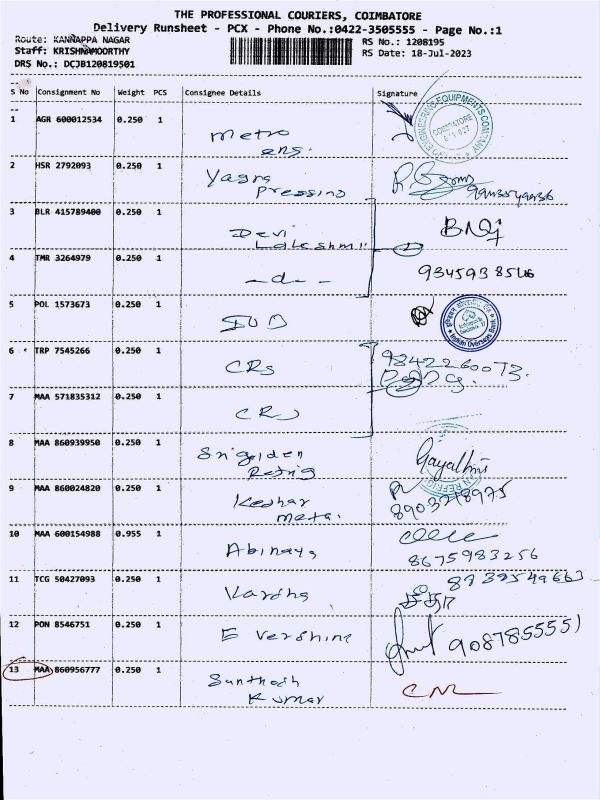 THE PROFESSIONAL COURIERS, COIMBATORE
Delivery Runsheet - PCX - Phone No.:0422-3505555 - Page No.:1
Route: KANNAPPA NAGAR
RS No.: 1208195
Staff: KRISHNAMOORTHY
RS Date: 18-Jul-2023
DRS No.: DCJB120819501
S No Consignment No Weight PCS Consignee Details Signature
1 AGR 600012534 0.250 1 Metro
eng.
ENGINEERING EQUIPMENTS COMPANY
COIMBATORE
2 HSR 2792093 0.250 1 Yagna
pressing
3 BLR 415789400 0.250 1 Devi
Lakshmi
4 TMR 3264979 0.250 1 -d-
5 POL 1573673 0.250 1 IOB
Indian Overseas Bank
6 TRP 7545266 0.250 1 CRS
7 MAA 571835312 0.250 1
8 MAA 860939950 0.250 1 Sri golden
Refrig Gayathri
9 MAA 860024820 0.250 1 Keshar
metal. 8903218975
10 MAA 600154988 0.955 1 Abinaya
8675983256
11 TCG 50427093 0.250 1
12 PON 8546751 0.250 1 E Vershine 9087855551
13 MAA 860956777 0.250 1 Santhosh
Kumar